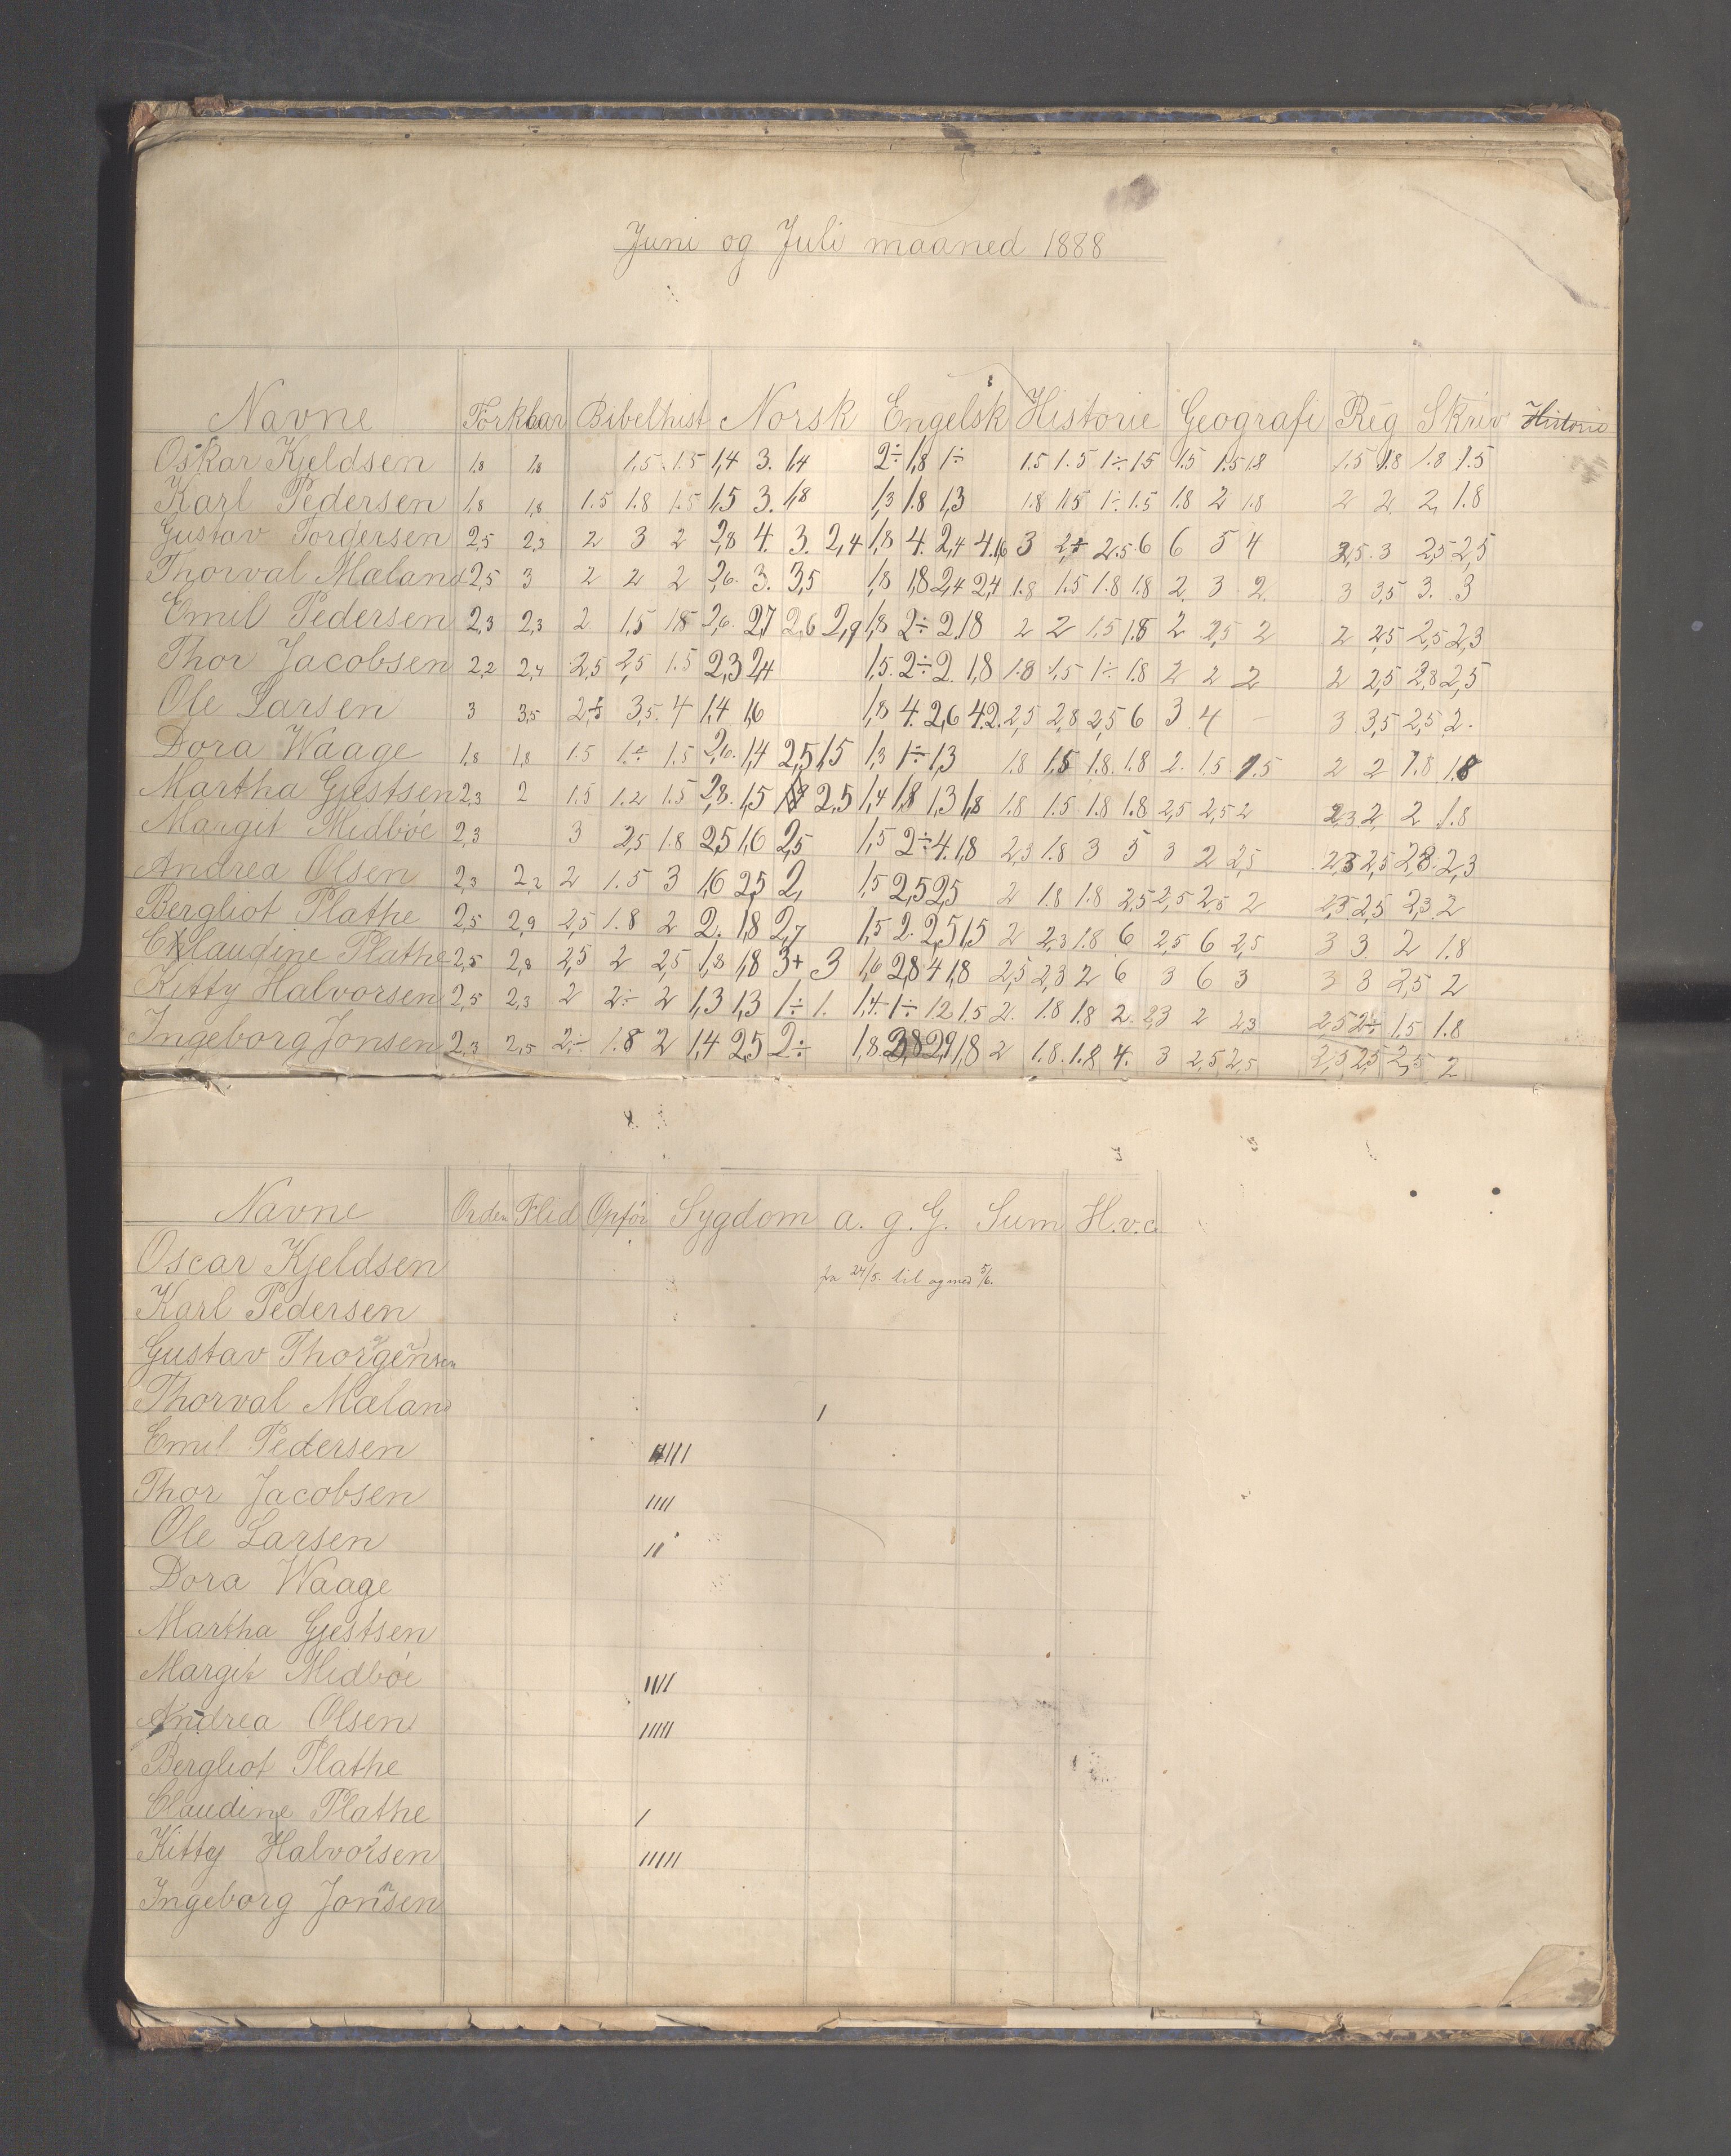 Juni og Juli maaned 1888
Navne Forklar Bibelhist Norsk Engelsk Historie Geografi Reg Skriv Historie
Oskar Kjeldsen 1,8 1,8 1,5 1.5 1,4 3. 1,4 2÷ 1,8 1÷ 1.5 1.5 1÷ 1.5 1.5 1.5 1.8 1.5 1.8 1.8 1.5
Karl Pedersen 1,8 1,8 1.5 1.8 1.5 1,5 3. 1,8 1,3 1.8 1,3 1.8 1.5 1÷ 1.5 1.8 2 1.8 2 2 2 1.8
Gustav Torgersen 2,5 2,3 2 3 2 2,8 4. 3. 2,4 1,8 4. 2,4 4.1,6 3 2,5 2.5 6 6 5 4 2,5 3 2,5 2,5
Thorval Mæland 2,5 3 2 2 2 2,6. 3. 3,5 1,8 1,8 2,4 2,4 1.8 1.5 1.8 1.8 2. 3 2. 3 3,5 3. 3
Emil Pedersen 2,3 2,3 2. 1,5 1.8 2,6. 2,7 2,6 2,9 1,8 2÷ 2. 1.8 2 2 1.5 1.8 2 2,5 2 2 2,5 2,5 2,3
Thor Jacobsen 2,2 2,4 2,5 2,5 1.5 2,3 2,4 1,5. 2÷ 2. 1,8 1.8 1.5 1÷ 1.8 2 2 2 2 2,5 2,8 2,5
Ole Larsen 3 3,5 2,5 3,5. 4 1,4 1,6 1,8 4. 2,6 4.2. 2,5 2,8 2,5 6 3 4 – 3 3,5 2,5 2.
Dora Waage 1,8 1,8 1.5 1÷ 1.5 2,6. 1,4 2,5 1,5 1,3 1÷ 1,3 1.8 1.5 1.8. 1.8 2. 1.5. 1.5 2 2 1.8 1.8
Martha Gjestsen 2,3 2 1.5 1.2 1.5 2,8. 1,5 2,5 1,4 1,8 1,3 1,8 1.8 1.5 1.8 1.8 2,5 2,5 2 2,3 2 2 1.8
Margit Midbøe 2,3 3 2,5 1.8 2,5 1,6 2,5 1,5 2÷ 4. 1,8 2,3 1.8 3 5 3 2 2,5 2,3 2,5 2,8. 2,3
Andrea Olsen 2,3 2,2 2 1.5 3 1,6 2,5 2, 1,5 2,5 2,5 2 1.8 1.8 2,5 2,5 2,5 2 2,5 2,5 2,3. 2
Bergliot Plathe 2,5 2,9 2,5 1.8 2 2. 1,8 2,7 1,5 2. 2,5 1,5 2 2,3 1.8 6 2,5 6 2,5 3 3. 2 1.8
Claudine Plathe 2,5 2,8 2,5 2 2,5 1,8 1,8 3+ 3 1,6 2,8 4 1,8 2,5 2,3 2 6 3 6 3 3 3 2,5 2
Kitty Halvorsen 2,5 2,3 2 2÷ 2 1,3 1,3 1÷ 1. 1,4. 1÷ 1,2 1.5 2. 1.8 1.8 2. 2,3 2 2,3 2,5 2÷ 1.5 1.8
Ingeborg Jonsen 2,3 2,5 2÷ 1.8 2 1,4 2,5 2÷ 1,8. 3,8 2,9 1,8 2 1.8. 1.8 4. 3 2,5 2,5 2,5 2,5 2,5 2
Navne Orden Flid Opför Sygdom a. g. G. Sum H.v.c.
Oscar Kjeldsen fra 24/5. til og med 5/6.
Karl Pedersen
Gustav Thorgersen
Thorval Mæland /
Emil Pedersen /////
Thor Jacobsen ////
Ole Larsen //
Dora Waage
Martha Gjestsen
Margit Midbøe ////
Andrea Olsen /////
Bergliot Plathe
Claudine Plathe /
Kitty Halvorsen /////
Ingeborg Jonsen